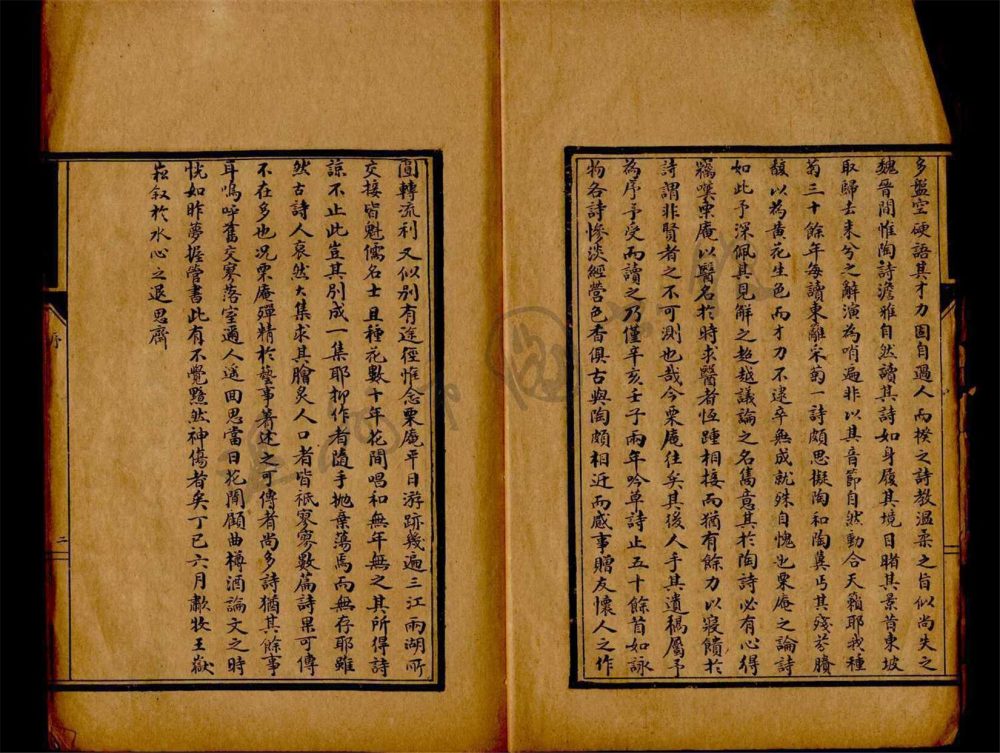 多盤空硬語其才力固自過人而揆之詩教溫柔之旨似尚失之
魏晉間惟陶詩澹雅自然讀其詩如身履其境目睹其景昔東坡
取歸去來兮之辭演為哨遍非以其音節自然動合天籟耶我種
菊三十餘年每讀東籬采菊一詩頗思擬陶和陶冀丐其殘芬賸
馥以為黃花生色而才力不逮卒無成就殊自愧也栗庵之論詩
如此予深佩其見解之超越議論之名雋意其於陶詩必有心得
竊嘆栗庵以醫名於時求醫者恆踵相接而猶有餘力以寢饋於
詩謂非賢者之不可測也哉今栗庵往矣其後人手其遺稿屬予
為序予受而讀之乃僅辛亥壬子兩年吟草詩止五十餘首如詠
物各詩慘淡經營色香俱古與陶頗相近而感事贈友懷人之作
圓轉流利又似別有途徑惟念栗庵平日游跡幾遍三江兩湖所
交接皆魁儒名士且種花數十年花間唱和無年無之其所得詩
諒不止此豈其別成一集耶抑作者隨手拋棄蕩焉而無存耶雖
然古詩人裒然大集求其膾炙人口者皆祇寥寥數篇詩果可傳
不在多也況栗庵殫精於藝事著述之可傳者尚多詩猶其餘事
耳嗚呼舊交寥落室邇人遐回思當日花開顧曲樽酒論文之時
恍如昨夢握管書此有不覺黯然神傷者矣丁巳六月肅牧王嶽
崧敘於水心之退思齋
序
二